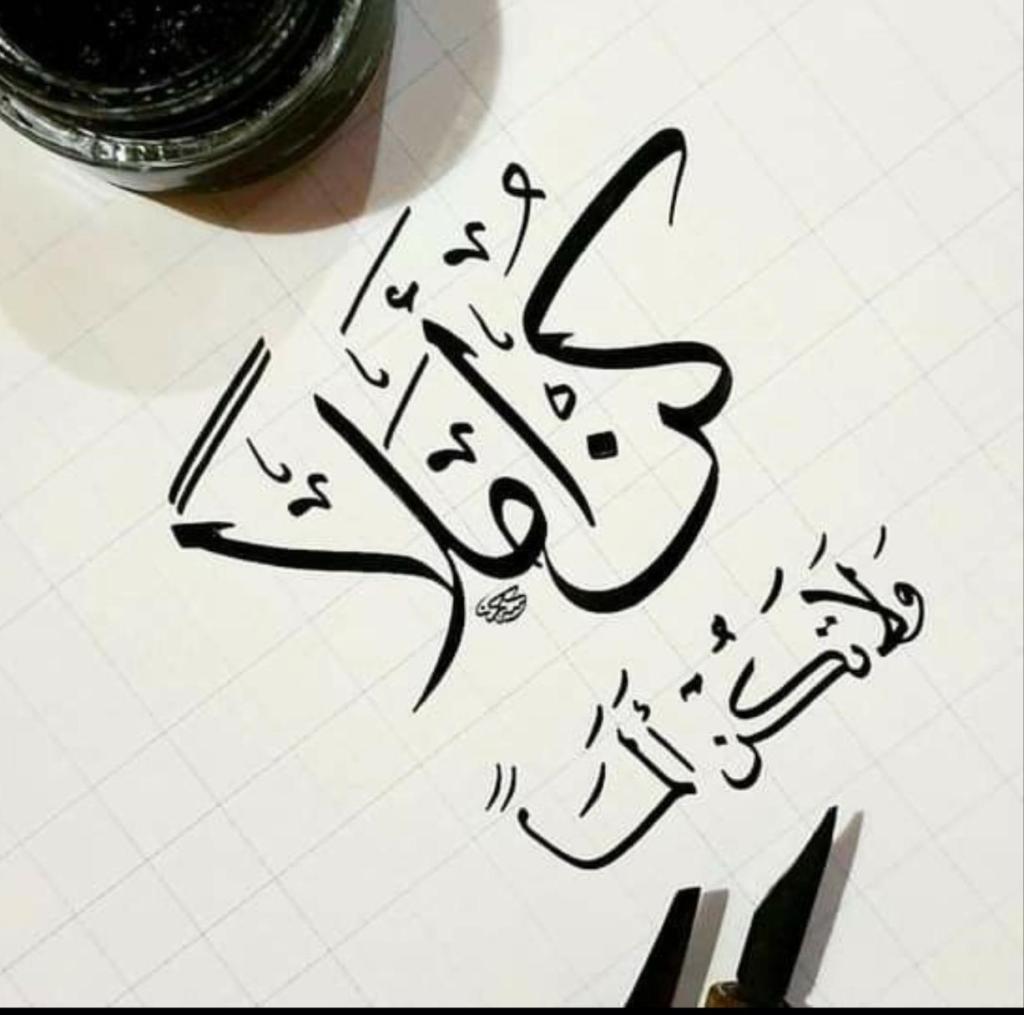 كُنْ أَمَلًا
وَلَا تَكُنْ أَلَمًا